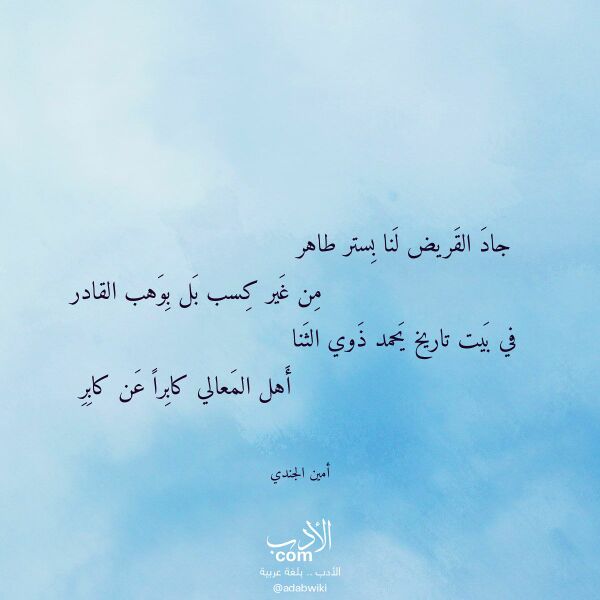 جادَ القَريض لَنا بِستر طاهر
مِن غَير كِسب بَل بِوَهب القادر
في بَيت تاريخ يَحمد ذَوي الثَنا
أَهل المَعالي كابِراً عَن كابِرِ
أمين الجندي
الأدب
com
الأدب .. بلغة عربية
@adabwiki